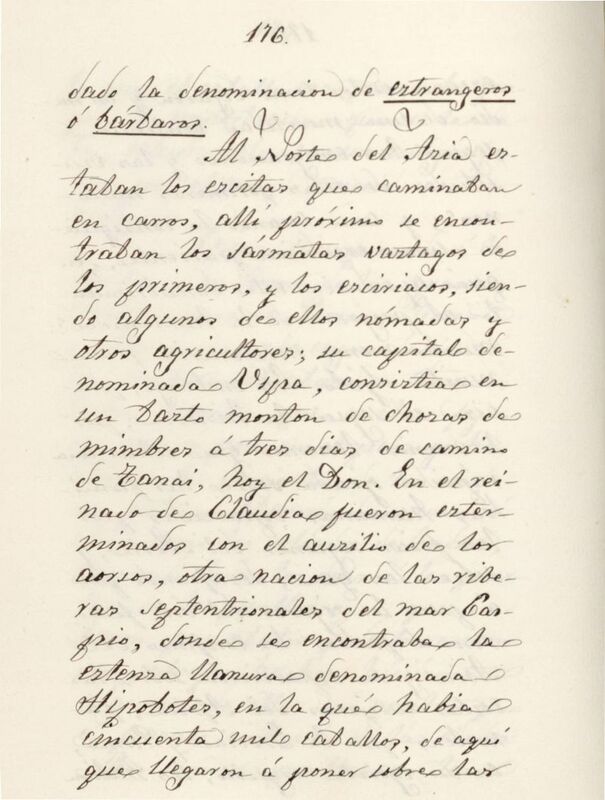 176.
dado la denominacion de eztrangeros
ó bárbaros.
Al Norte del Azia es-
taban los escitas que caminaban
en carros, allí próximo se encon-
traban los sármatas vastagos de
los primeros, y los esciriacos, sien-
do algunos de ellos nómadas y
otros agricultores; su capital de-
nominada Uspa, consistia en
un basto monton de chozas de
mimbres á tres dias de camino
de Tanai, hoy el Don. En el rei-
nado de Claudia fueron exter-
minados con el auxilio de los
aorsos, otra nacion de las ribe-
ras septentrionales del mar Cas-
pio, donde se encontraba la
estenza llanura denominada
Hipobotes, en la qué habia
cincuenta mil caballos, de aquí
que llegaron á poner sobre las